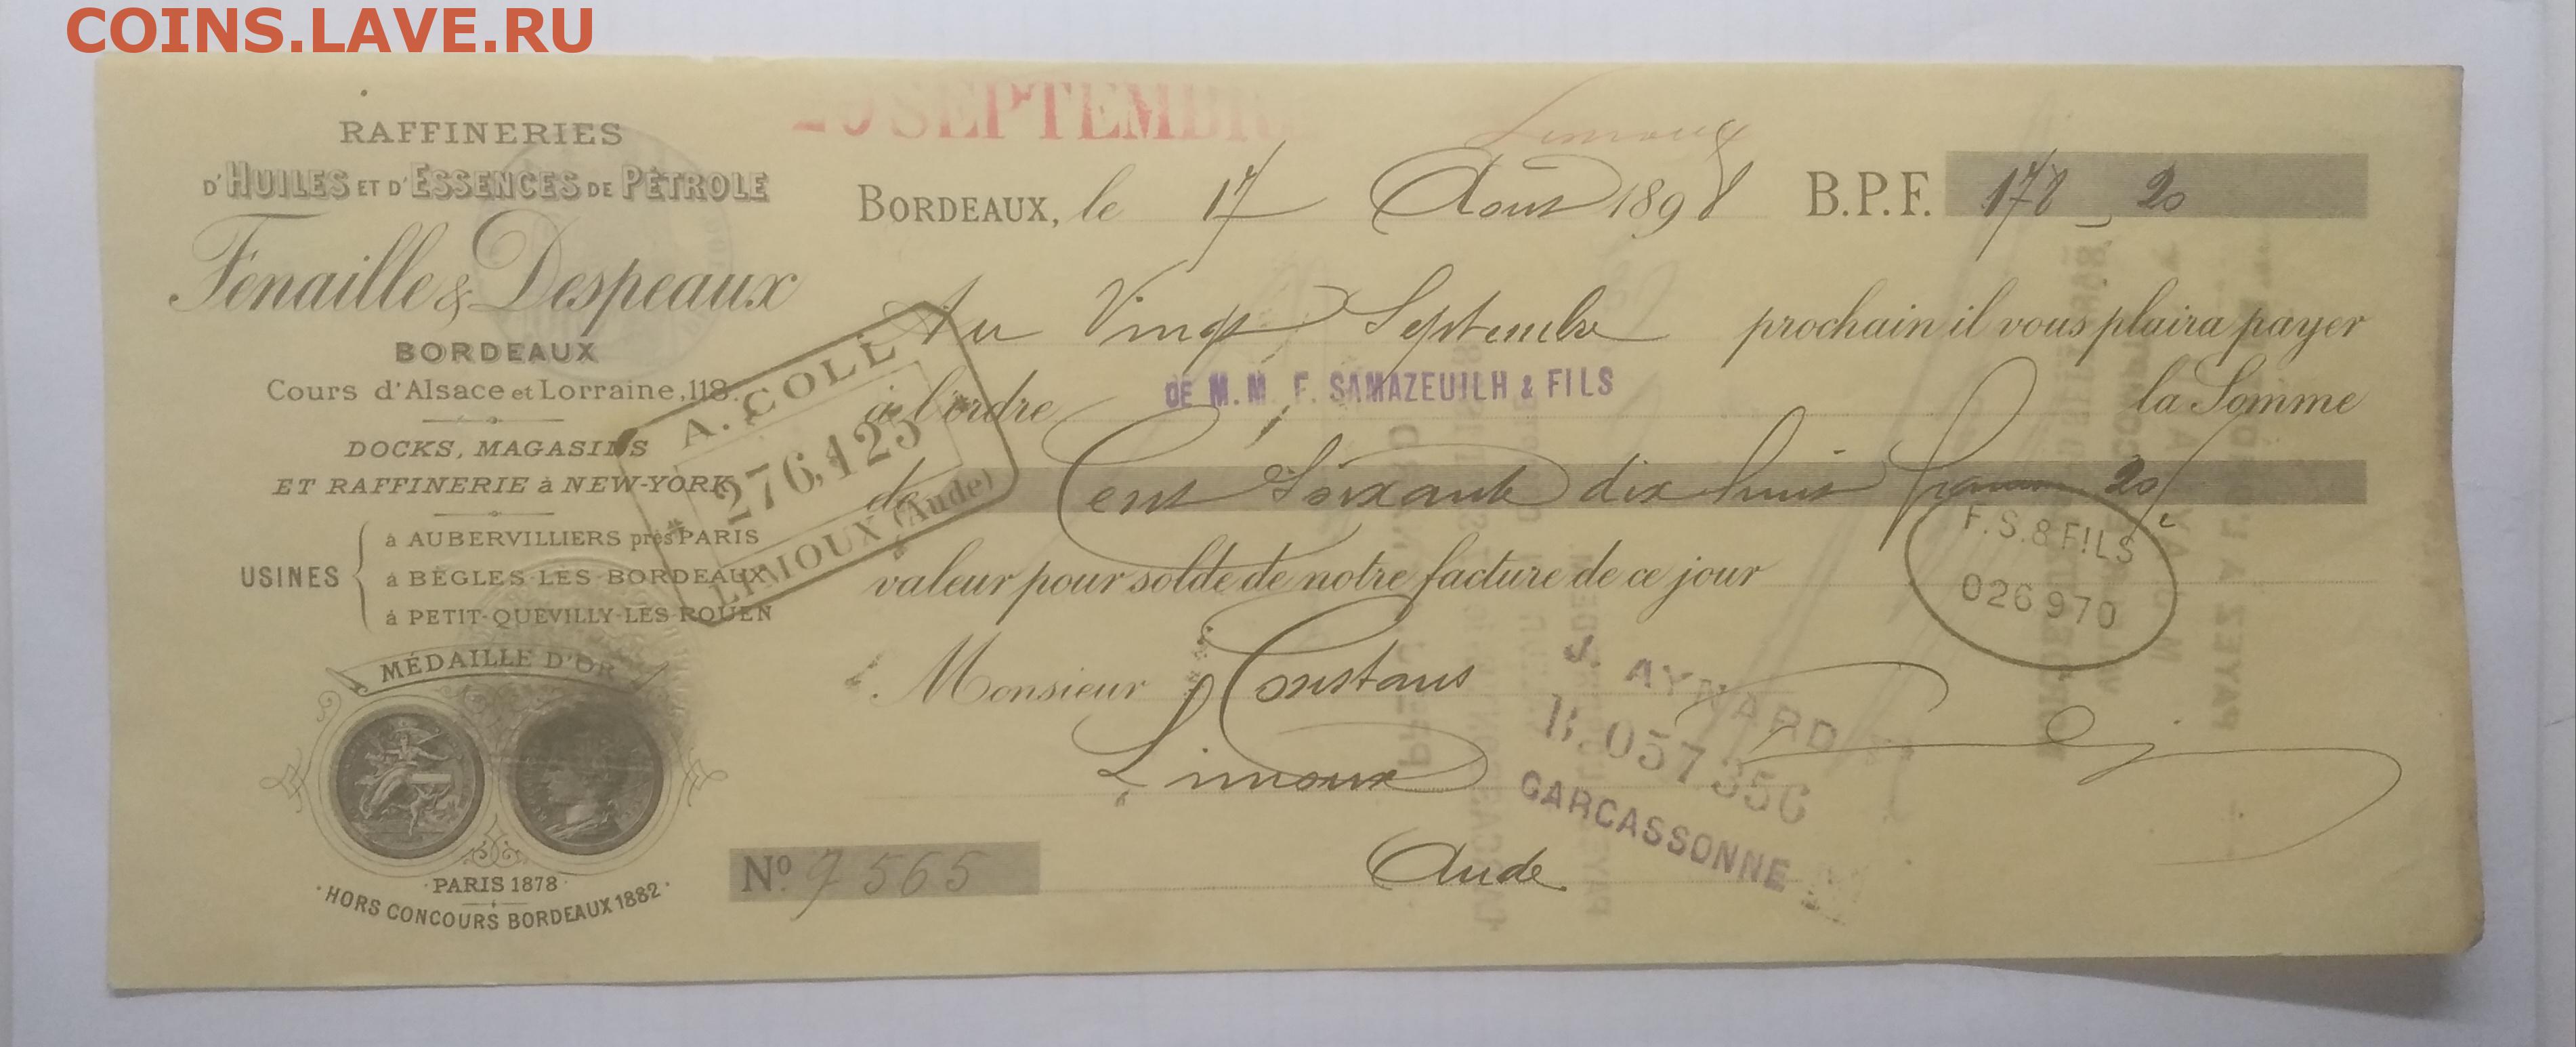 COINS.LAVE.RU
RAFFINERIES
D'HUILES ET D'ESSENCES DE PÉTROLE
Fenaille & Despeaux
BORDEAUX
Cours d'Alsace et Lorraine, 118.
DOCKS, MAGASINS
ET RAFFINERIE à NEW-YORK
USINES
à AUBERVILLIERS près PARIS
à BÈGLES-LÈS-BORDEAUX
à PETIT-QUEVILLY-LÈS ROUEN
MÉDAILLE D'OR
PARIS 1878
HORS CONCOURS BORDEAUX 1882
20 SEPTEMBRE
Limoux
BORDEAUX, le 17 Août 1898 B.P.F. 178 _ 20
Au Vingt Septembre prochain il vous plaira payer
à l'ordre DE M.M. F. SAMAZEUILH & FILS la Somme
de Cent Soixante dix huit francs 20
valeur pour solde de notre facture de ce jour
Monsieur Constans
Limoux
Aude
Nº 7565
A. COLL
276,125
LIMOUX (Aude)
F.S. & FILS
026970
J. AYNARD
B. 057356
CARCASSONNE
PAYEZ A L'